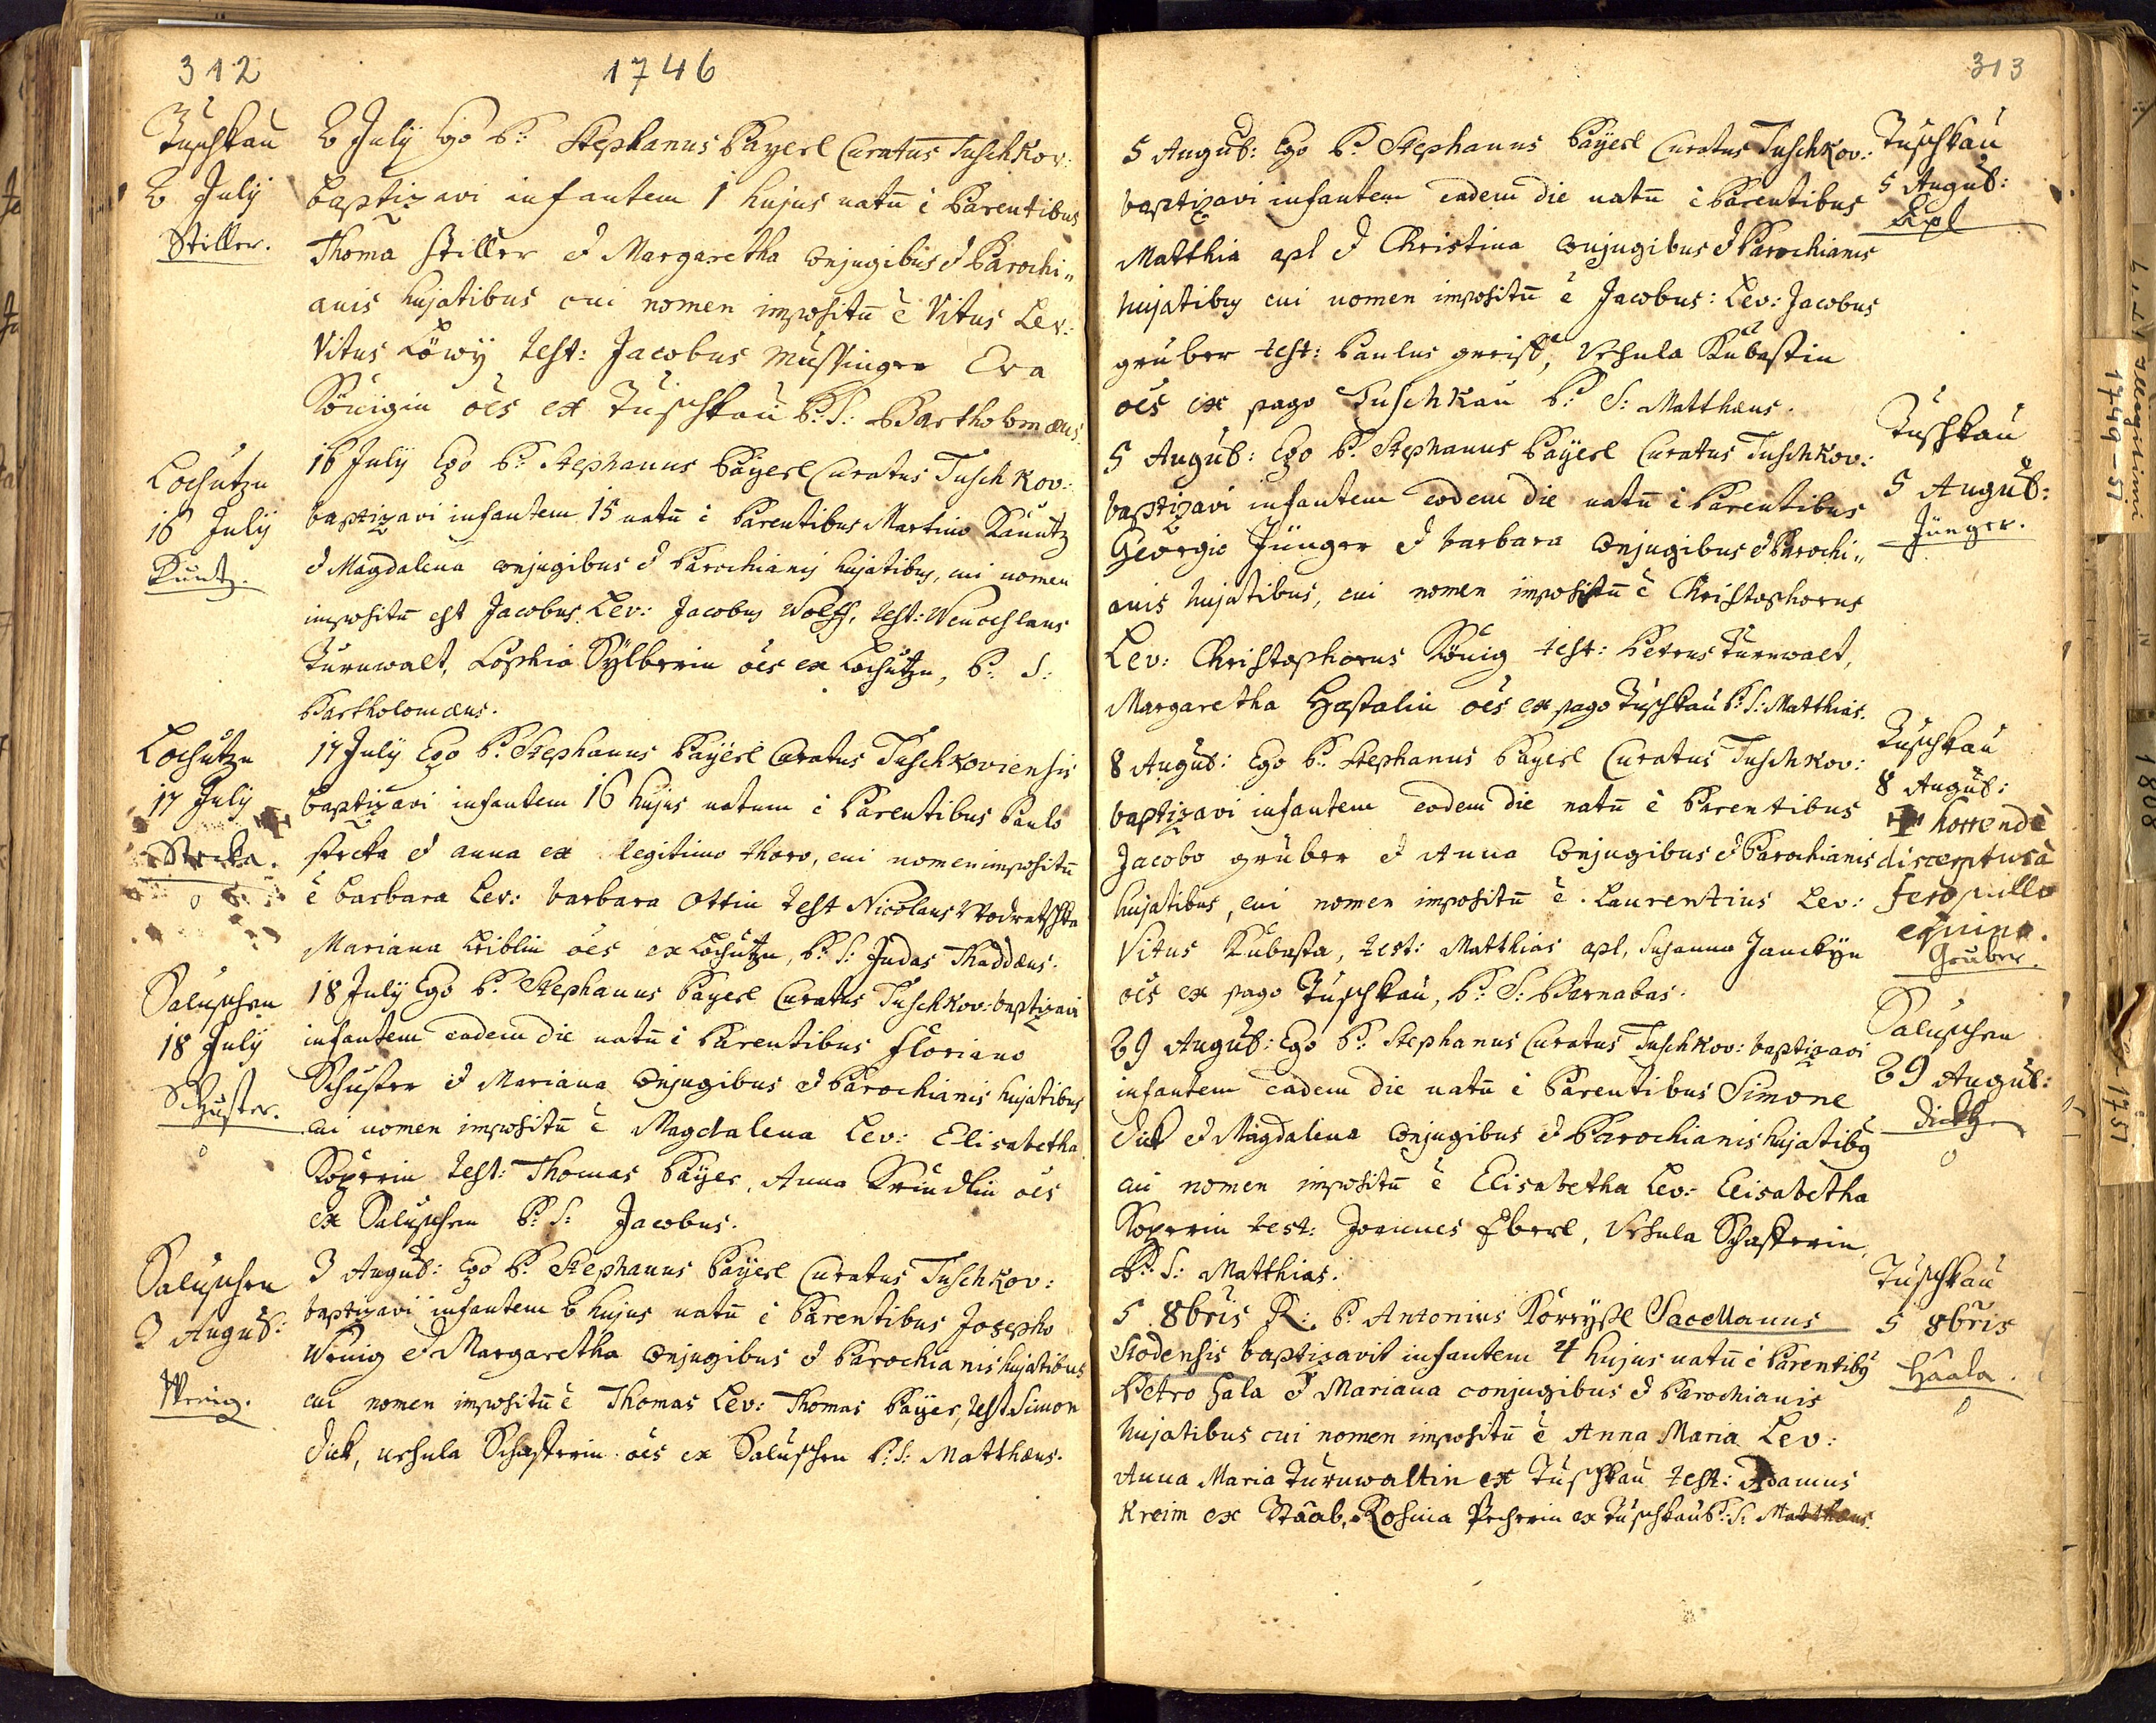 312
1746
Tuschkau
2 July
Stiller.
2 July Ego P: Stephanus Bayerl Curatus Tuschkov:
baptizavi infantem 1 hujus natu̅ è Parentibus
Thoma Stiller et Margaretha Conjugibus et Parochi„
anis hujatibus cui nomen impositu̅ ẽ Vitus Lev:
Vitus Löwÿ test: Jacobus Mussinger Eva
Königin oẽs ex Tuschkau P: S: Bartholomæus.
Loschutzn
16 July
Kuntz.
16 July Ego P: Stephanus Bayerl Curatus Tuschkov:
baptizavi infantem 15 natu̅ è Parentibus Martino Kauntz
et Magdalena conjugibus et Parochianis hujatibus, cui nomen
impositu̅ est Jacobus. Lev: Jacobus Wolff, test: Wenceslaus
Turnwalt, Sophia Sÿlberin oẽs ex Loschutzn, P: S:
Bartholomæus.
Loschutzn
17 July
Strcka.
17 July Ego P: Stephanus Bayerl Curatus Tuschkoviensis
baptizavi infantem 16 hujus natum è Parentibus Paulo
Strcka et Anna ex legitimo thoro, cui nomen impositu̅
ẽ Barbara Lev: Barbara Ottin test Nicolaus Wodratschka
Mariana Leiblin oẽs ex Loschutzn, P: S: Judas Thaddæus.
Saluschen
18 July
Schuster.
18 July Ego P: Stephanus Bayerl Curatus Tuschkov: baptizavi
infantem eadem die natu̅ è Parentibus Floriano
Schuster et Mariana Conjugibus et Parochianis hujatibus
cui nomen impositu̅ ẽ Magdalena Lev: Elisabetha
Koperin test: Thomas Bayer, Anna Kreindlin oẽs
ex Saluschen P: S: Jacobus.
Saluschen
3 August:
Wenig.
3 August: Ego P: Stephanus Bayerl Curatus Tuschkov:
baptizavi infantem 2 hujus natu̅ è Parentibus Josepho
Wenig et Margaretha Conjugibus et Parochianis hujatibus
cui nomen impositu̅ ẽ Thomas Lev: Thomas Bayer, test Simon
Dick, Ursula Schasterin oẽs ex Saluschen P: S: Matthæus.
313
5 August: Ego P: Stephanus Bayerl Curatus Tuschkov:
baptizavi infantem eadem die natu̅ è Parentibus
Matthia apl et Christina Conjugibus et Parochianis
hujatibus cui nomen impositu̅ ẽ Jacobus: Lev: Jacobus
gruber test: Paulus greist, Ursula Kubastin
oẽs ex pago Tuschkau P: S: Matthæus.
Tuschkau
5 August:
Apl
5 August: Ego P: Stephanus Bayerl Curatus Tuschkov:
baptizavi infantem eodem die natu̅ è Parentibus
Georgio Jünger et Barbara Conjugibus et Parochi„
anis hujatibus, cui nomen impositu̅ ẽ Christophorus
Lev: Christophorus König test: Petrus Turnwalt,
Margaretha Hastalin oẽs ex pago Tuschkau P: S: Matthias.
Tuschkau
5 August:
Jünger.
8 August: Ego P: Stephanus Bayerl Curatus Tuschkov:
baptizavi infantem eodem die natu̅ è Parentibus
Jacobo gruber et Anna Conjugibus et Parochianis
hujatibus, cui nomen impositu̅ ẽ Laurentius Lev:
Vitus Kubasta, test: Matthias apl, Susanna Janckÿn
oẽs ex pago Tuschkau, P: S: Barnabas.
Tuschkau
8 August:
horrendè
discerptus à
fero pullo
equino.
Gruber.
29 August: Ego P: Stephanus Curatus Tuschkov: baptizavi
infantem eadem die natu̅ è Parentibus Simone
Dick et Magdalena Conjugibus et Parochianis hujatibus
cui nomen impositu̅ ẽ Elisabetha Lev: Elisabetha
Koperin test: Joannes Eberl, Ursula Schasterin,
P: S: Matthias.
Saluschen
29 August:
Dickh
5 8bris R: P: Antonius Korzyßl Sacellanus
Stodensis baptizavit infantem 4 hujus natu̅ è Parentibus
Petro Hala et Mariana conjugibus et Parochianis
hujatibus cui nomen impositu̅ ẽ Anna Maria Lev:
Anna Maria Turnwaltin ex Tuschkau test: Adamus
Kreim ex Staab, Rosina Pecherin ex Tuschkau P: S: Matthæus.
Tuschkau
5 8bris
Haala.
1749-51
188
1751